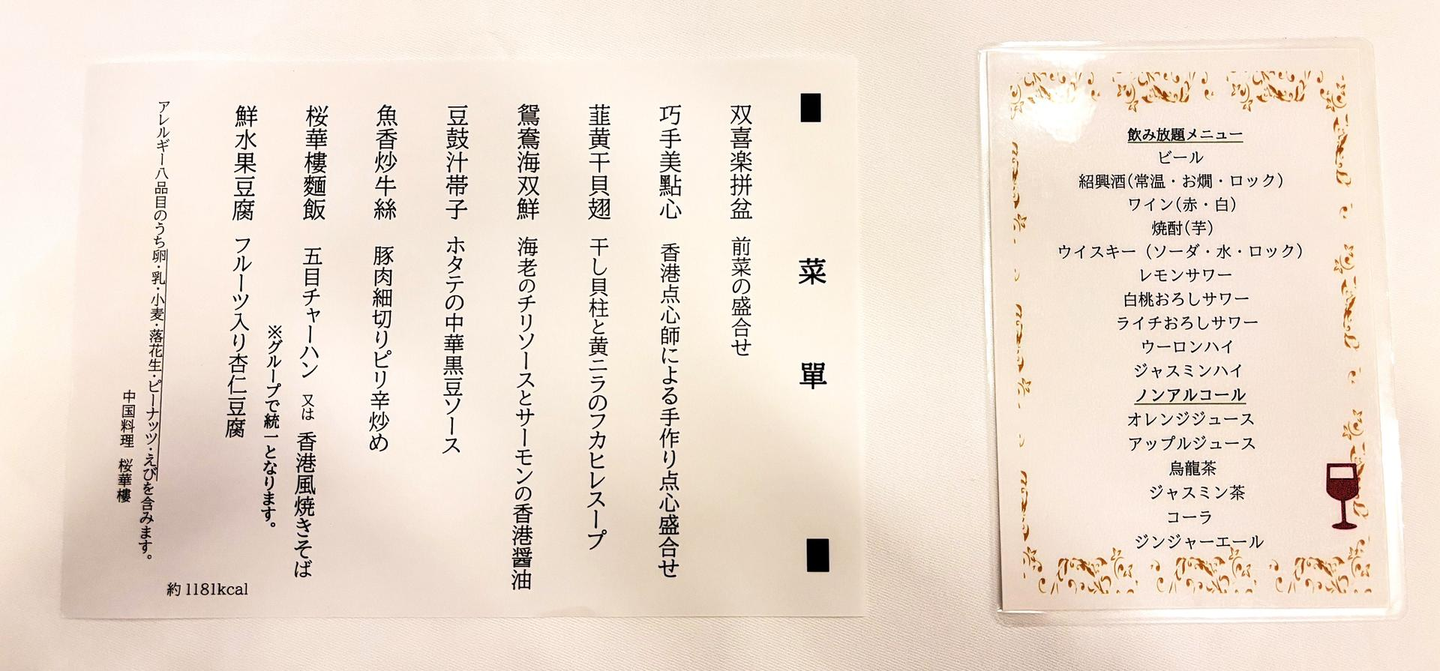 菜單
双喜楽拼盆 前菜の盛合せ
巧手美點心 香港点心師による手作り点心盛合せ
韮黄干貝翅 干し貝柱と黄ニラのフカヒレスープ
鴛鴦海双鮮 海老のチリソースとサーモンの香港醤油
豆鼓汁帯子 ホタテの中華黒豆ソース
魚香炒牛絲 豚肉細切りピリ辛炒め
桜華樓麵飯 五目チャーハン 又は 香港風焼きそば
※グループで統一となります。
鮮水果豆腐 フルーツ入り杏仁豆腐
アレルギー八品目のうち卵・乳・小麦・落花生・ピーナッツ・えびを含みます。
中国料理 桜華樓
約1181kcal
飲み放題メニュー
ビール
紹興酒(常温・お燗・ロック)
ワイン(赤・白)
焼酎(芋)
ウイスキー(ソーダ・水・ロック)
レモンサワー
白桃おろしサワー
ライチおろしサワー
ウーロンハイ
ジャスミンハイ
ノンアルコール
オレンジジュース
アップルジュース
烏龍茶
ジャスミン茶
コーラ
ジンジャーエール